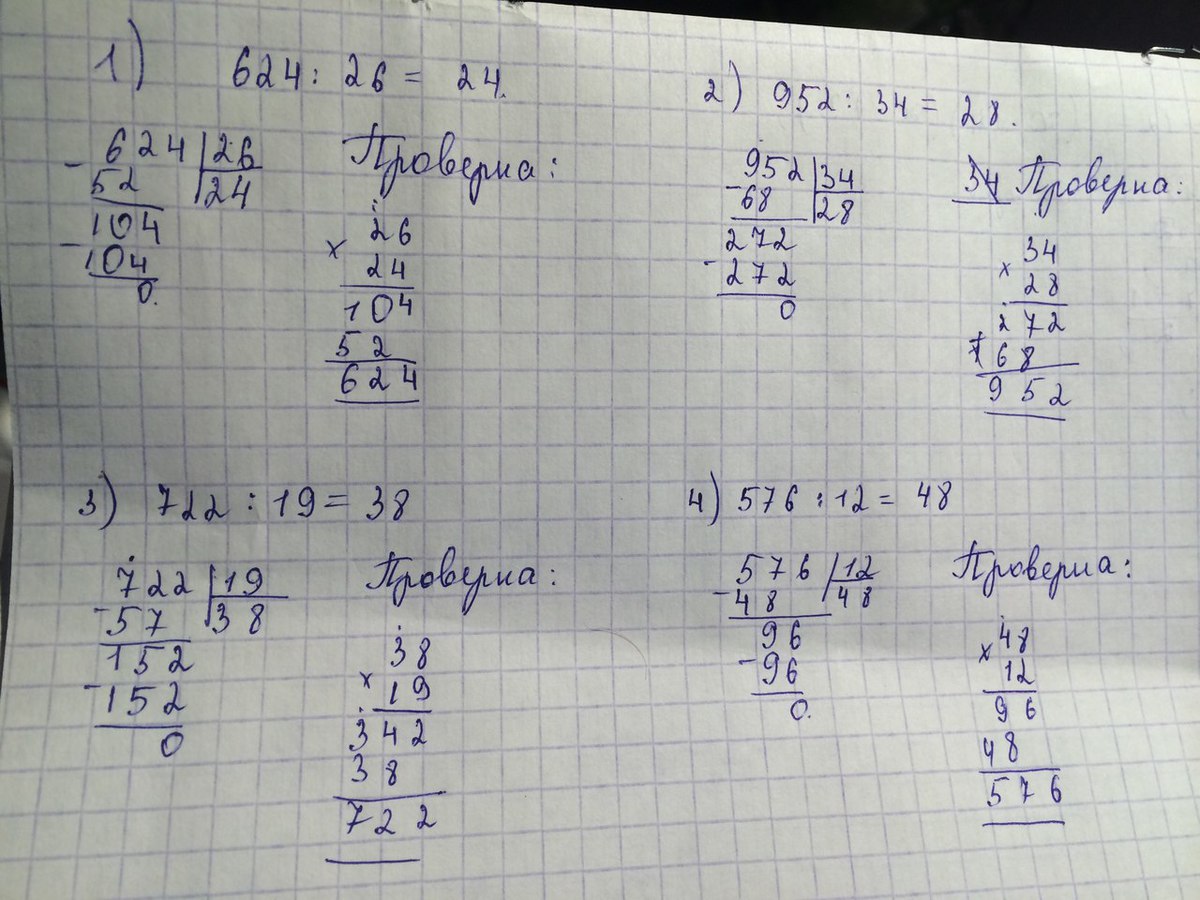 1) 624 : 26 = 24.
- 624 | 26
52 | 24
104
- 104
0.
Проверка:
26
× 24
104
52
624
2) 952 : 34 = 28.
952 | 34
- 68 | 28
272
- 272
0
Проверка:
34
× 28
272
+ 68
952
3) 722 : 19 = 38
722 | 19
- 57 | 38
152
- 152
0
Проверка:
38
× 19
342
38
722
4) 576 : 12 = 48
576 | 12
- 48 | 48
96
- 96
0.
Проверка:
48
× 12
96
48
576